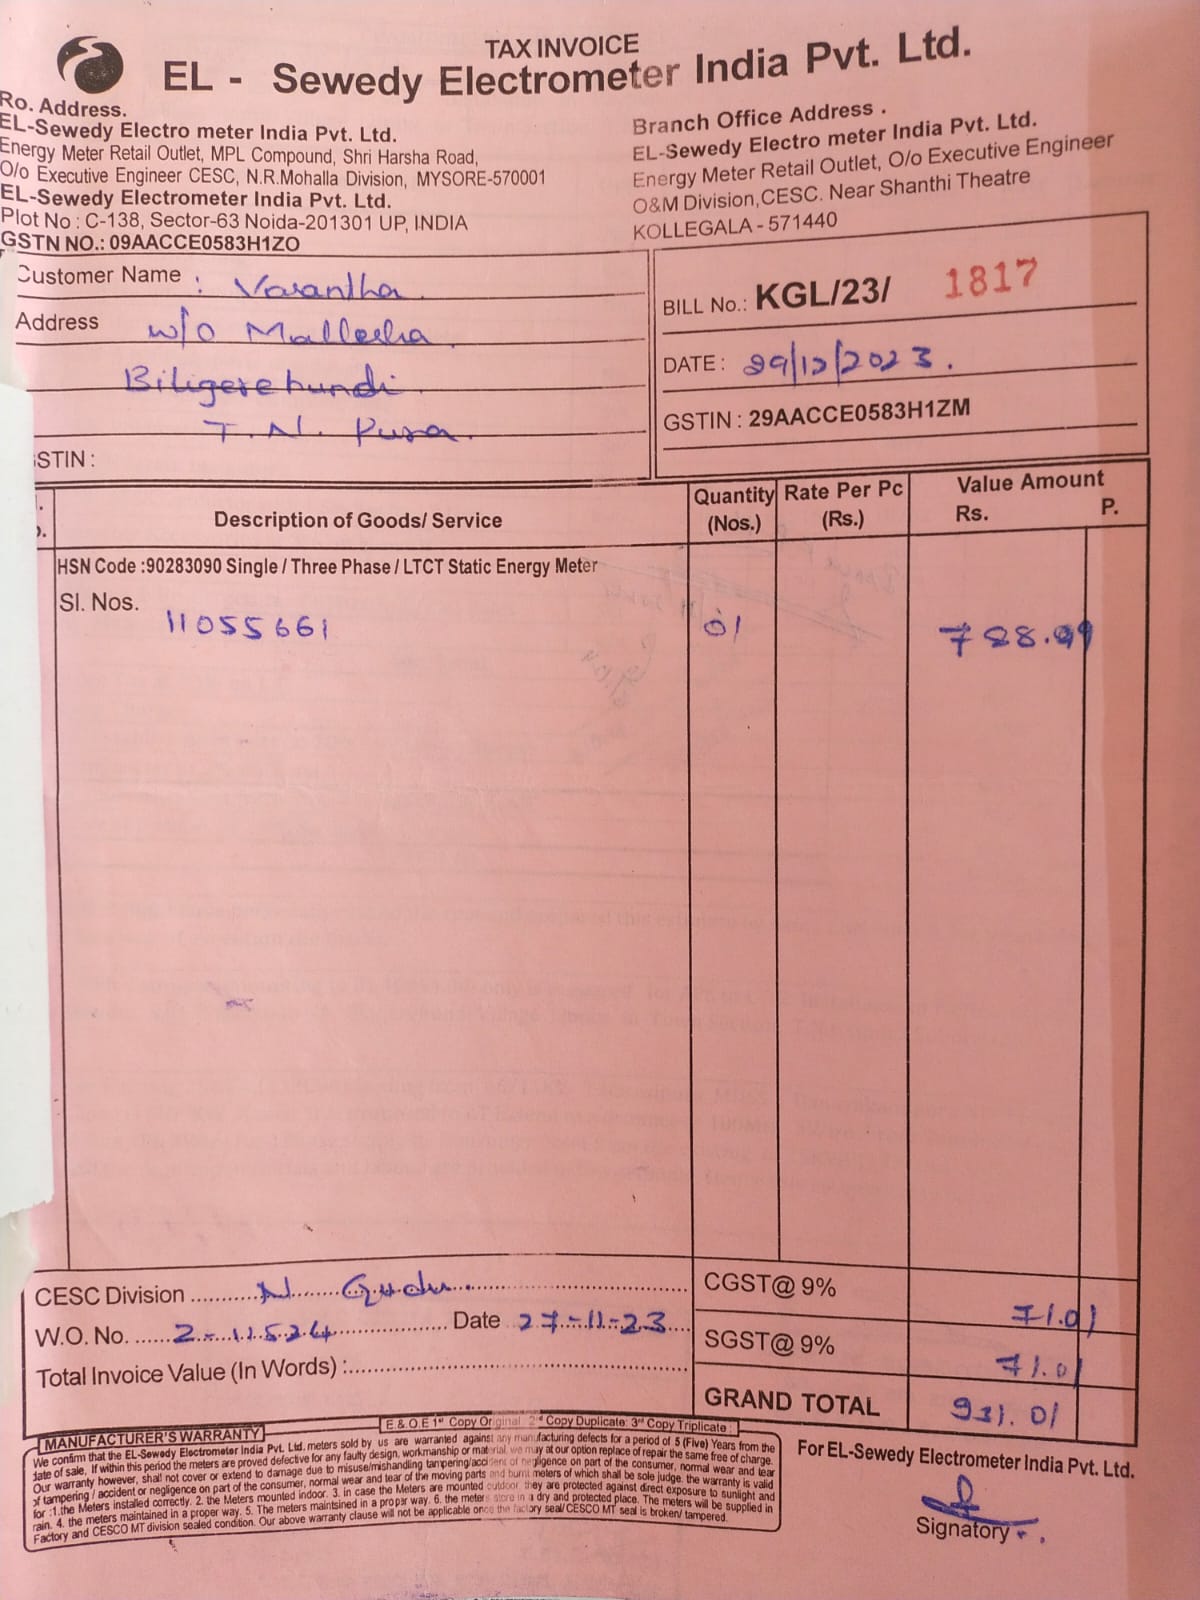 TAX INVOICE
EL - Sewedy Electrometer India Pvt. Ltd.
Ro. Address.
EL-Sewedy Electro meter India Pvt. Ltd.
Energy Meter Retail Outlet, MPL Compound, Shri Harsha Road,
O/o Executive Engineer CESC, N.R.Mohalla Division, MYSORE-570001
EL-Sewedy Electrometer India Pvt. Ltd.
Plot No : C-138, Sector-63 Noida-201301 UP, INDIA
GSTN NO.: 09AACCE0583H1ZO
Branch Office Address .
EL-Sewedy Electro meter India Pvt. Ltd.
Energy Meter Retail Outlet, O/o Executive Engineer
O&M Division,CESC. Near Shanthi Theatre
KOLLEGALA - 571440
Customer Name : Vasantha
Address w/o Mallesha
Biligerehundi
T. N. Pura.
GSTIN :
BILL No.: KGL/23/ 1817
DATE : 29/12/2023.
GSTIN : 29AACCE0583H1ZM
Description of Goods/ Service
Quantity (Nos.)
Rate Per Pc (Rs.)
Value Amount
Rs. P.
HSN Code :90283090 Single / Three Phase / LTCT Static Energy Meter
Sl. Nos.
11055661 01 788.99
CESC Division ........... N. Gudu
W.O. No. ...... 2-11524 Date 27-11-23
Total Invoice Value (In Words) :
CGST@ 9% 71.01
SGST@ 9% 71.01
GRAND TOTAL 931.01
E & O.E 1st Copy Original 2nd Copy Duplicate: 3rd Copy Triplicate :
MANUFACTURER'S WARRANTY
We confirm that the EL-Sewedy Electrometer India Pvt. Ltd. meters sold by us are warranted against any manufacturing defects for a period of 5 (Five) Years from the
date of sale, If within this period the meters are proved defective for any faulty design, workmanship or material, we may at our option replace of repair the same free of charge.
Our warranty however, shall not cover or extend to damage due to misuse/mishandling tampering/accident of negligence on part of the consumer, normal wear and tear
of tampering / accident or negligence on part of the consumer, normal wear and tear of the moving parts and burnt meters of which shall be sole judge. the warranty is valid
for :1.the Meters installed correctly. 2. the Meters mounted indoor. 3. in case the Meters are mounted outdoor they are protected against direct exposure to sunlight and
rain. 4. the meters maintained in a proper way. 5. The meters maintsined in a proper way. 6. the meters store in a dry and protected place. The meters will be supplied in
Factory and CESCO MT division sealed condition. Our above warranty clause will not be applicable once the factory seal/CESCO MT seal is broken/ tampered.
For EL-Sewedy Electrometer India Pvt. Ltd.
Signatory